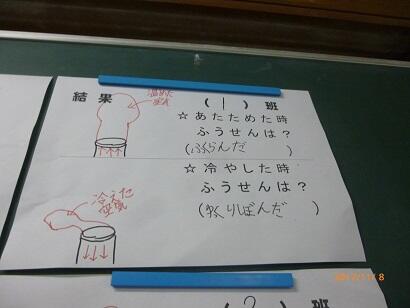 結果
(1)班
温めた
空気
☆あたためた時
ふうせんは？
(ふくらんだ)
☆冷やした時
ふうせんは？
冷えた
空気
(ゆっくりしぼんだ)
(2)班